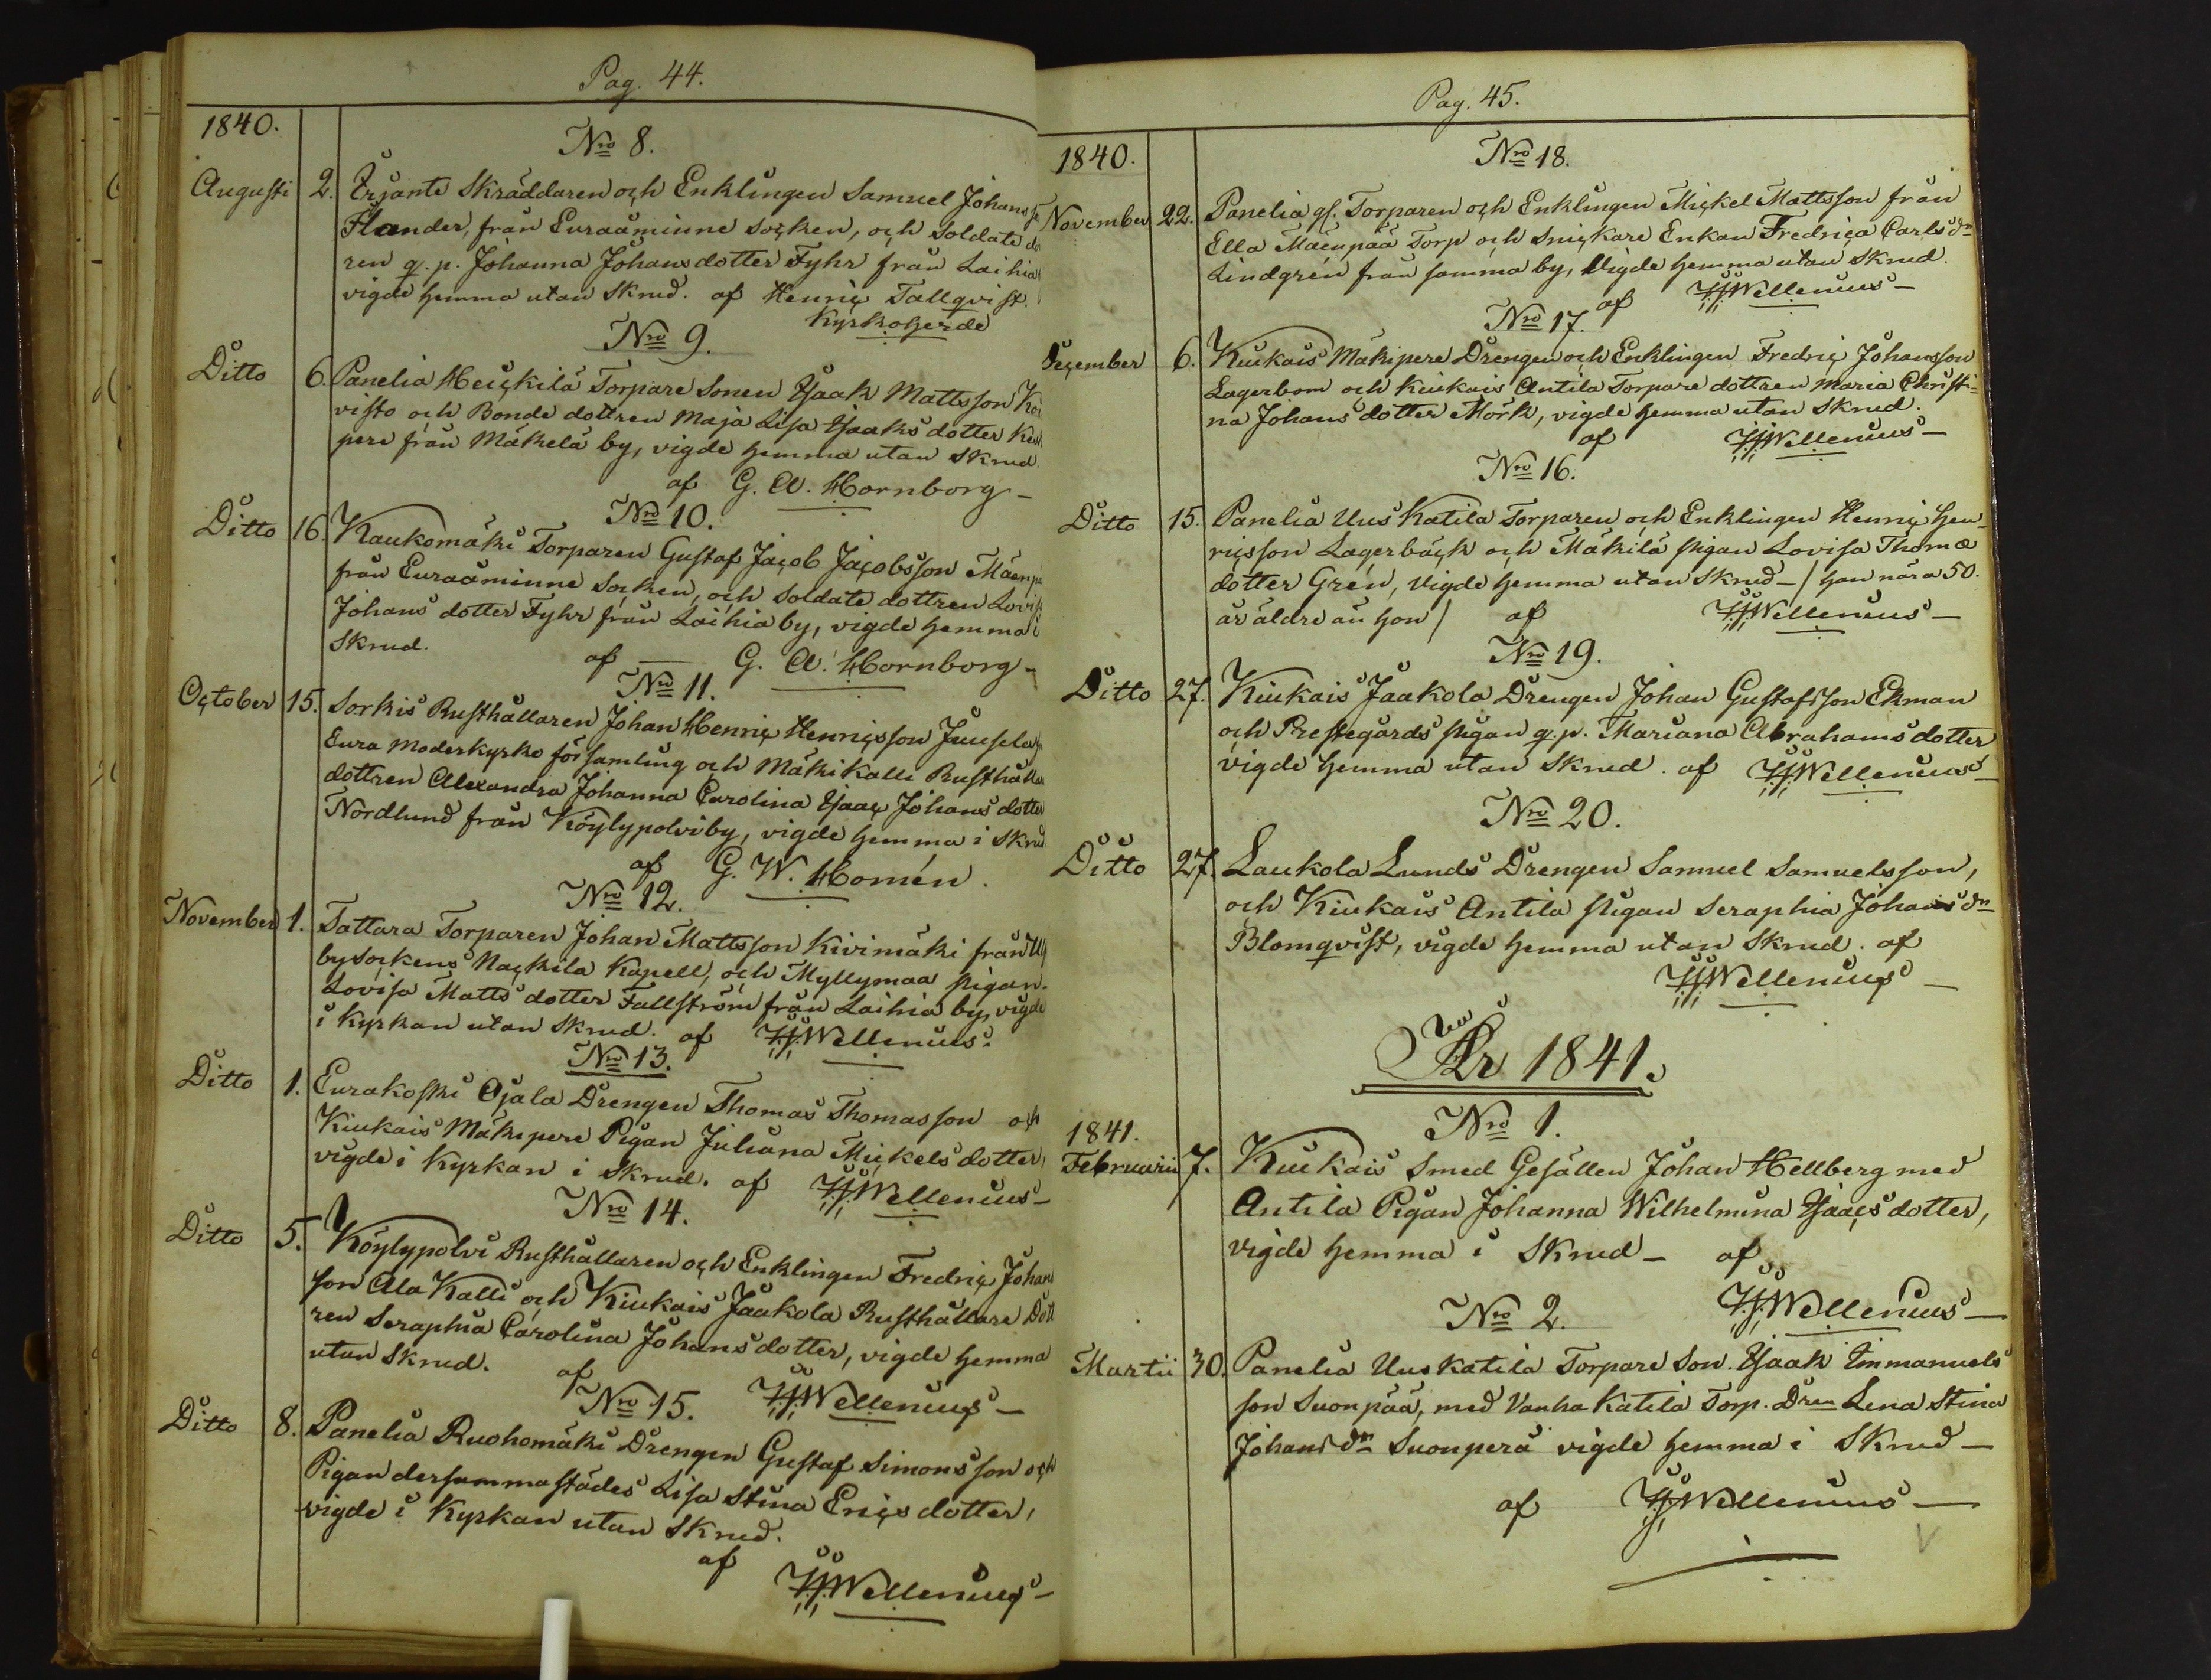 Pag. 44.
1840.
Nro 8.
Augusti 2. Ersante Skräddaren och Enklingen Samuel Johansso
Flander, från Euraåminne Socken, och Soldate do
ren q.p. Johanna Johansdotter Fyhr från Laihia
vigde hemma utan Skrud. af Henric Tallqvist.
Kyrkoherde
Nro 9.
Ditto 6. Panelia Heickilä Torpare Sonen Isaak Mattsson Koi
visto och Bonde dottren Maja Lisa Isaaks dotter
pere från Mäkelä by, vigde hemma utan Skrud.
af G. A. Hornborg –
Nro 10.
Ditto 16. Kaukomäki Torparen Gustaf Jacob Jacobsson Mäenpä
från Euraåminne Socken, och Soldate dottren Lovis
Johans dotter Fyhr från Laihia by, vigde hemma i
Skrud.
af — G. A. Hornborg –
Nro 11.
October 15. Sorkis Rusthållaren Johan Henric Henricsson Juusela
Eura Moderkyrko församling och Mäki Kalli Rusthålla
dottren Alexandra Johanna Carolina Isaac Johans dotter
Nordlund från Köylypolvi by, vigde hemma i Skrud
af G. W. Homén.
Nro 12.
November 1. Tattara Torparen Johan Mattsson Kivimäki från Ulf
by Sockens Nackila Kapell, och Myllymaa pigan
Lovisa Matts dotter Fallström från Laihia by, vigde
i Kyrkan utan Skrud. af Wellenius.
Nro 13.
Ditto 1. Eurakoski Ojala Drengen Thomas Thomasson och
Kiukais Mäkipere Pigan Juliana Mickels dotter,
vigde i Kyrkan i Skrud. af Wellenius –
Nro 14.
Ditto 5. Köylypolvi Rusthållaren och Enklingen Fredric Johan
son Ala Kalli och Kiukais Jaakola Rusthållare Dott
ren Seraphia Carolina Johans dotter, vigde hemma
utan Skrud. af
Nro 15. Wellenius –
Ditto 8. Panelia Ruohomäki Drengen Gustaf Simonsson och
Pigan dersammastädes Lisa Stina Erics dotter,
vigde i Kyrkan utan Skrud.
af
Wellenius –
Pag. 45.
1840.
Nro 18.
November 22. Panelia gl. Torparen och Enklingen Mickel Mattsson från
Ella Mäenpää Torp och Snickare Enkan Fredrica Carls dn
Lindgrén från samma by, Vigde hemma utan Skrud.
af Wellenius –
Nro 17.
December 6. Kiukais Mäkipere Drengen och Enklingen Fredric Johansson
Lagerbom och Kiukais Antila Torpare dottren Maria Christi-
na Johans dotter Mörk, vigde hemma utan Skrud.
af Wellenius –
Nro 16.
Ditto 15. Panelia Uus Katila Torparen och Enklingen Henric Hen-
ricsson Lagerbäck och Mäkilä pigan Lovisa Thomæ
dotter Grén, Vigde hemma utan Skrud – / han nära 50.
år äldre än hon / af Wellenius –
Nro 19.
Ditto 27. Kiukais Jaakola Drengen Johan Gustafsson Ekman
och Prestegårds pigan q.p. Mariana Abrahams dotter
vigde hemma utan Skrud. af Wellenius –
Nro 20.
Ditto 27. Laukola Lunds Drengen Samuel Samuelsson,
och Kiukais Antila pigan Seraphia Johans dn
Blomqvist, vigde hemma utan Skrud. af
Wellenius –
År 1841.
Nro 1.
1841.
Februarii 7. Kiukais Smed Gesällen Johan Hellberg med
Antila Pigan Johanna Wilhelmina Isaacs dotter,
vigde hemma i Skrud – af
Wellenius –
Nro 2.
Martii 30. Panelia Uus Katila Torpare Son Isaak Emmanuels
son Suonpää, med Vanha Katila Torp. Dren Lena Stina
Johans dn Suonperä vigde hemma i Skrud –
af Wellenius –